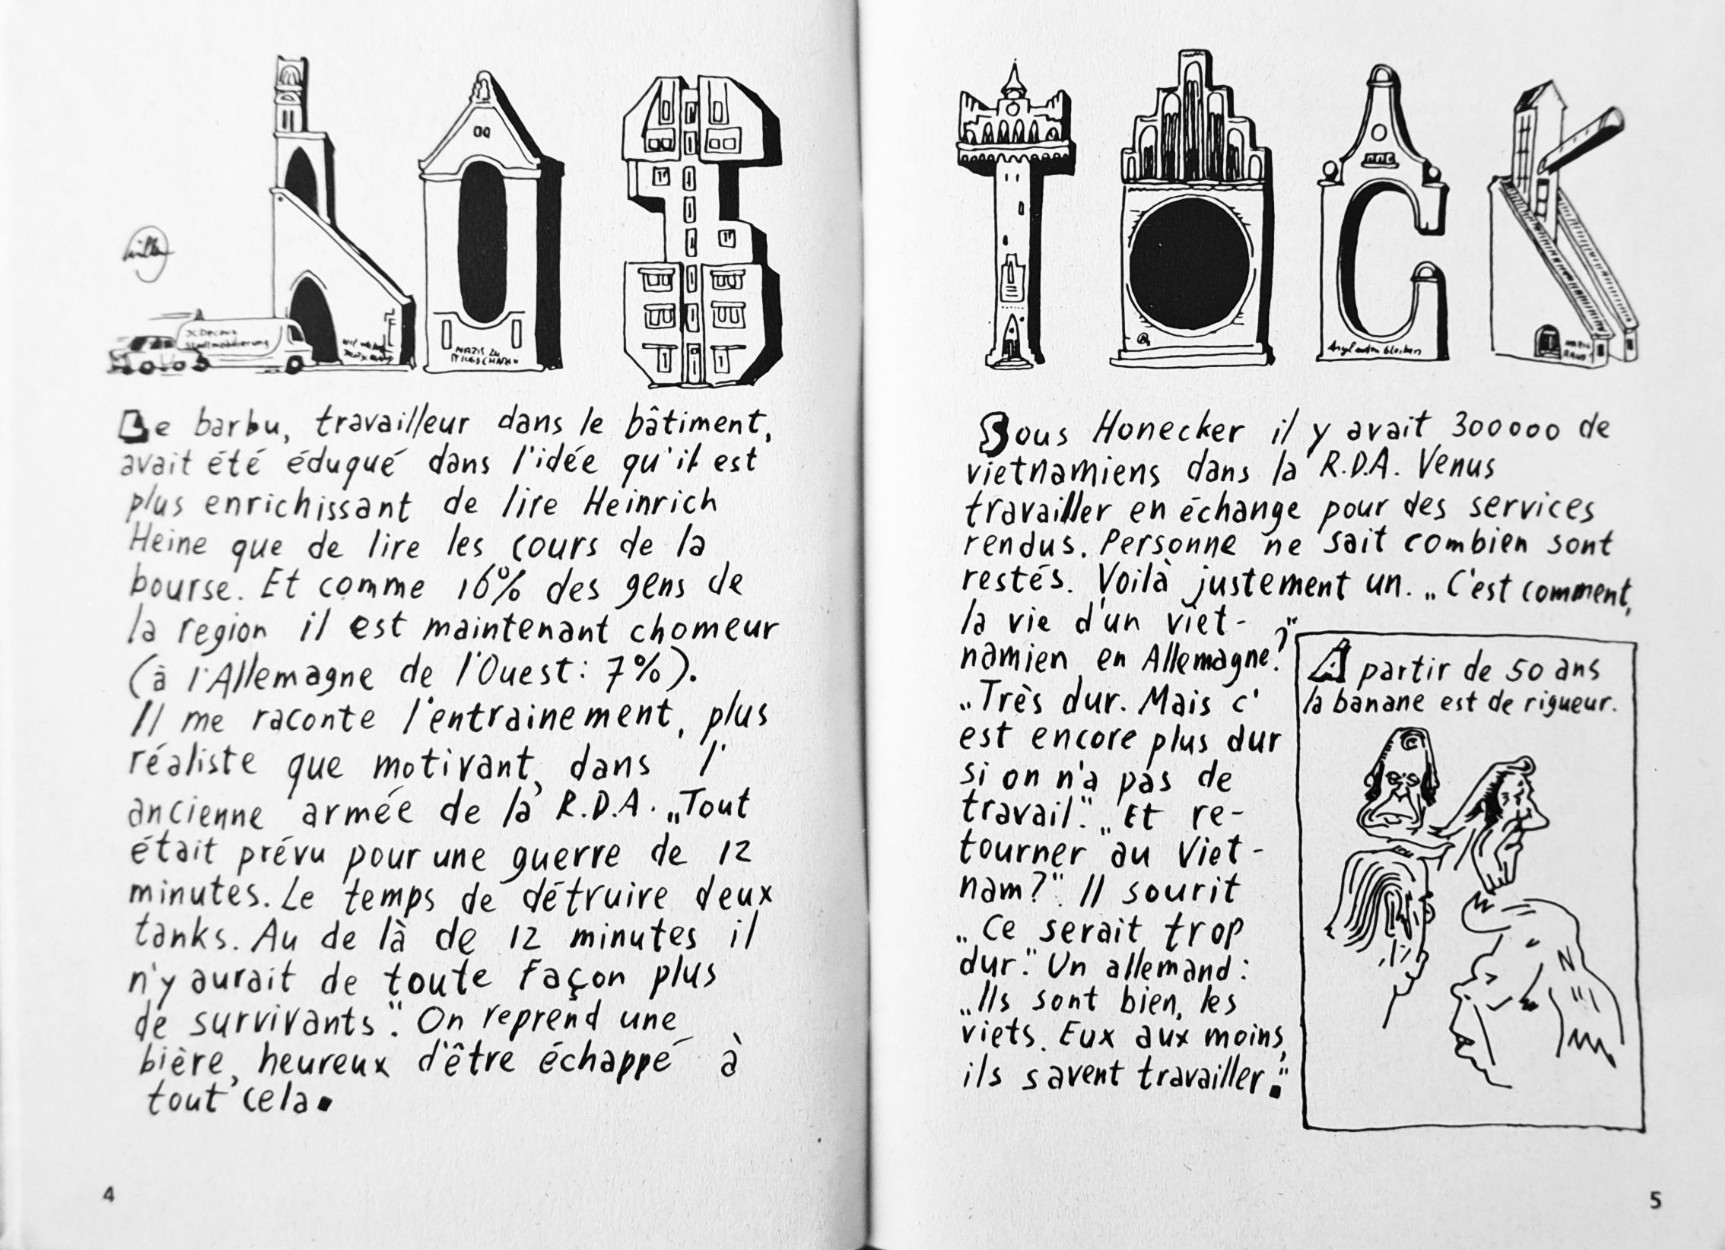 ROSTOCK
JCDecaux
Stadtmöblierung
NAZIS ZU
Angst außen bleiben
NAZIS
RAUS
Le barbu, travailleur dans le bâtiment,
avait été éduqué dans l'idée qu'il est
plus enrichissant de lire Heinrich
Heine que de lire les cours de la
bourse. Et comme 16% des gens de
la region il est maintenant chomeur
(à l'Allemagne de l'Ouest: 7%).
Il me raconte l'entrainement, plus
réaliste que motivant, dans l'
ancienne armée de la R.D.A. „Tout
était prévu pour une guerre de 12
minutes. Le temps de détruire deux
tanks. Au de là de 12 minutes il
n'y aurait de toute façon plus
de survivants". On reprend une
bière, heureux d'être échappé à
tout cela.
4
Sous Honecker il y avait 300000 de
vietnamiens dans la R.D.A. Venus
travailler en échange pour des services
rendus. Personne ne sait combien sont
restés. Voilà justement un. „C'est comment,
la vie d'un viet-
namien en Allemagne?"
„Très dur. Mais c'
est encore plus dur
si on n'a pas de
travail." „Et re-
tourner au Viet-
nam?" Il sourit
„Ce serait trop
dur." Un allemand:
„Ils sont bien, les
viets. Eux aux moins,
ils savent travailler."
A partir de 50 ans
la banane est de rigueur.
5